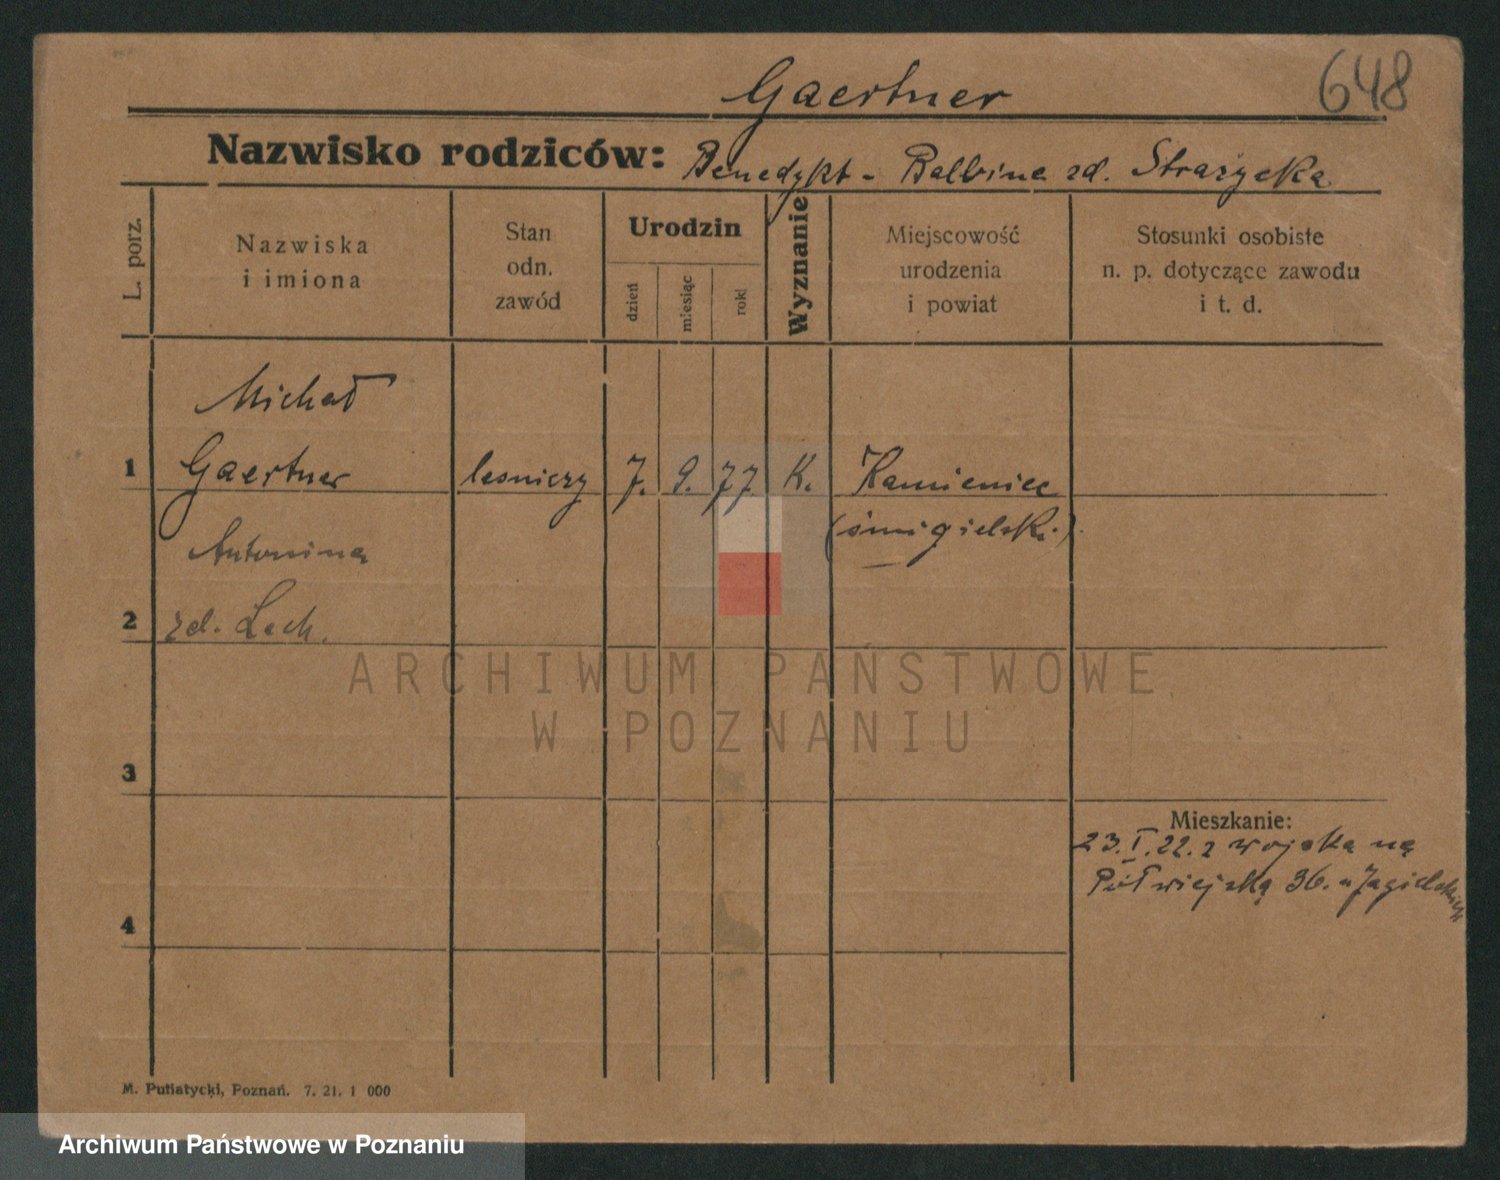 Gaertner 648
Nazwisko rodziców: Benedykt - Balbina zd. Strażycka
L. porz.
Nazwiska
i imiona
Stan
odn.
zawód
Urodzin
dzień
miesiąc
rok
Wyznanie
Miejscowość
urodzenia
i powiat
Stosunki osobiste
n. p. dotyczące zawodu
i t. d.
Michał
1 Gaertner leśniczy 7. 9. 77 K. Kamieniec
(śmigielski.)
Antonina
2 zd. Lech.
ARCHIWUM PAŃSTWOWE
W POZNANIU
3
Mieszkanie:
23.I.22. z wojska na
Półwiejską 36. u Jagielskich
4
M. Putiatycki, Poznań. 7. 21. 1 000
Archiwum Państwowe w Poznaniu